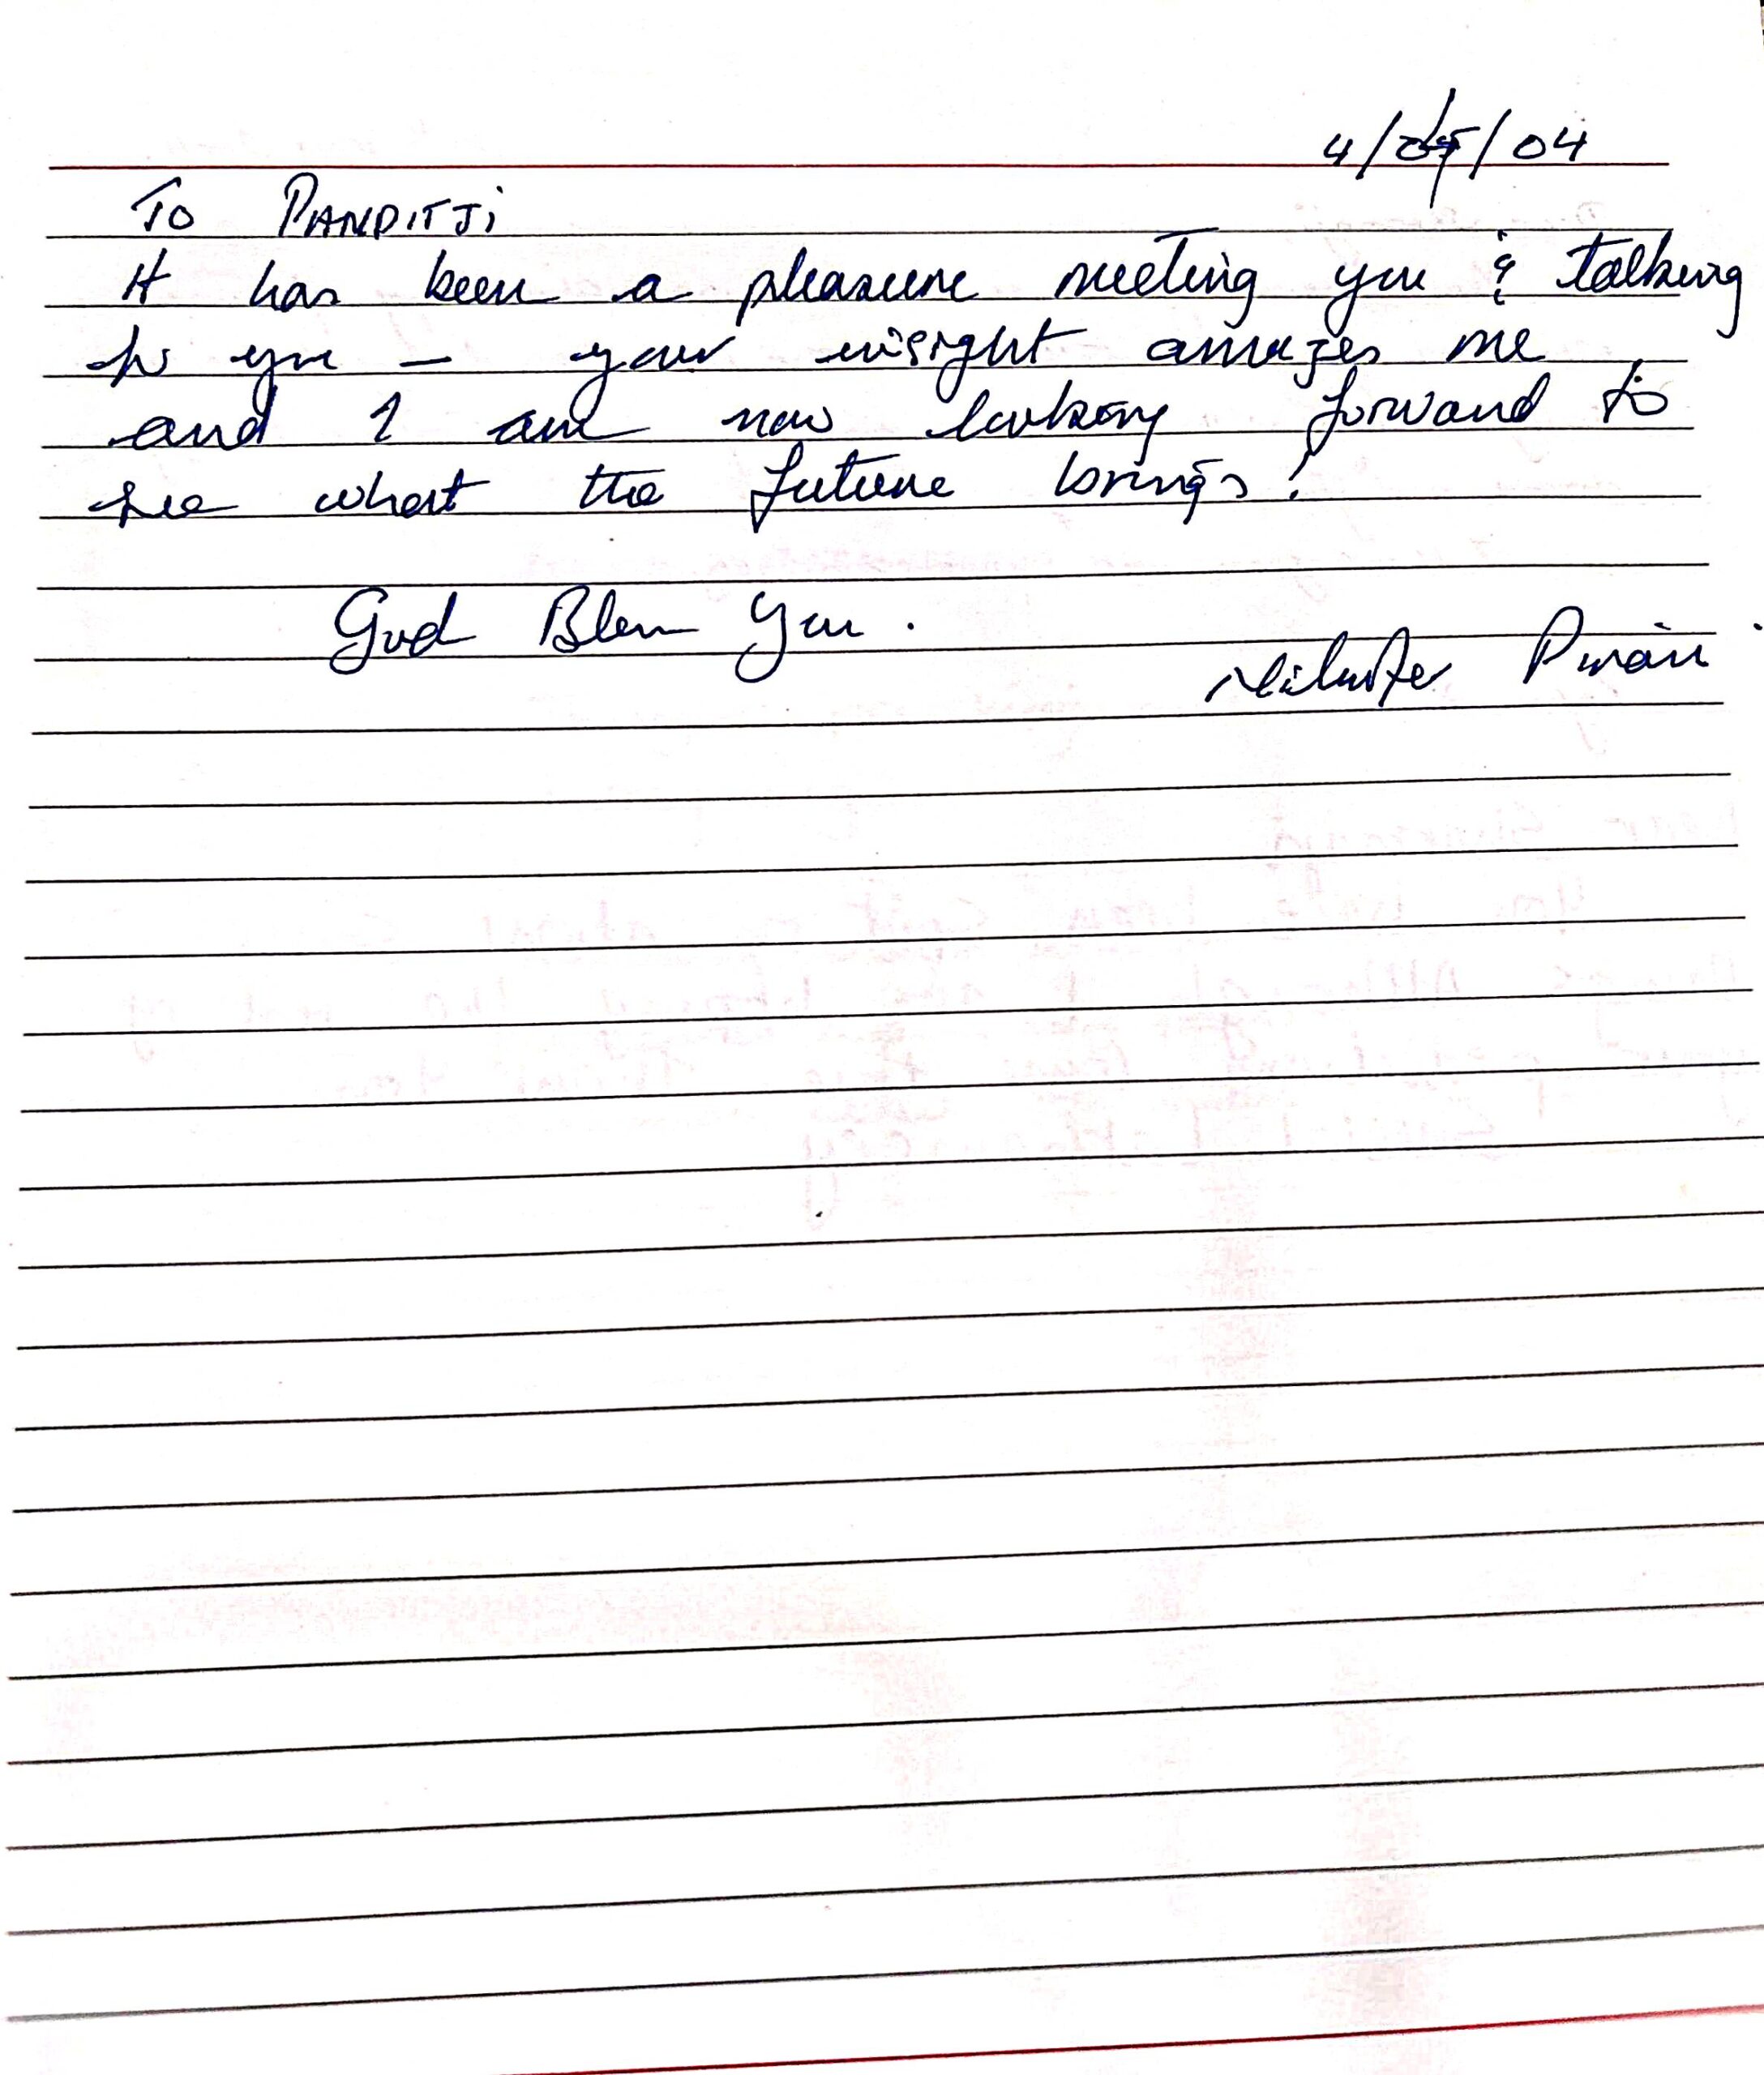 4/05/04
To PANDITJi
It has been a pleasure meeting you & talking
to you – your insight amazes me
and I am now looking forward to
see what the future brings!
God Bless You.